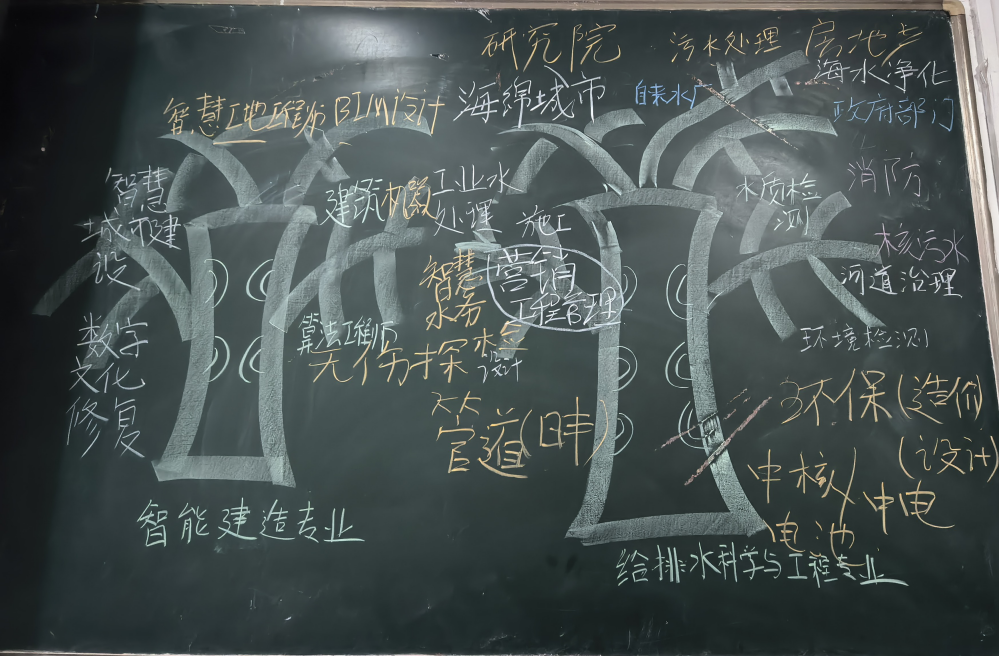 研究院
污水处理
房地产
海水净化
智慧工地工程师
BIM设计
海绵城市
自来水厂
政府部门
智慧
城市建
设
建筑机器
工业水
处理
施工
水质检
测
消防
核污水
河道治理
智慧
水务
营销
工程管理
环境检测
数字
文化
修复
算法工程师
无伤探
设计
管道
环保(造价)
(设计)
中核
中电
电池
智能建造专业
给排水科学与工程专业